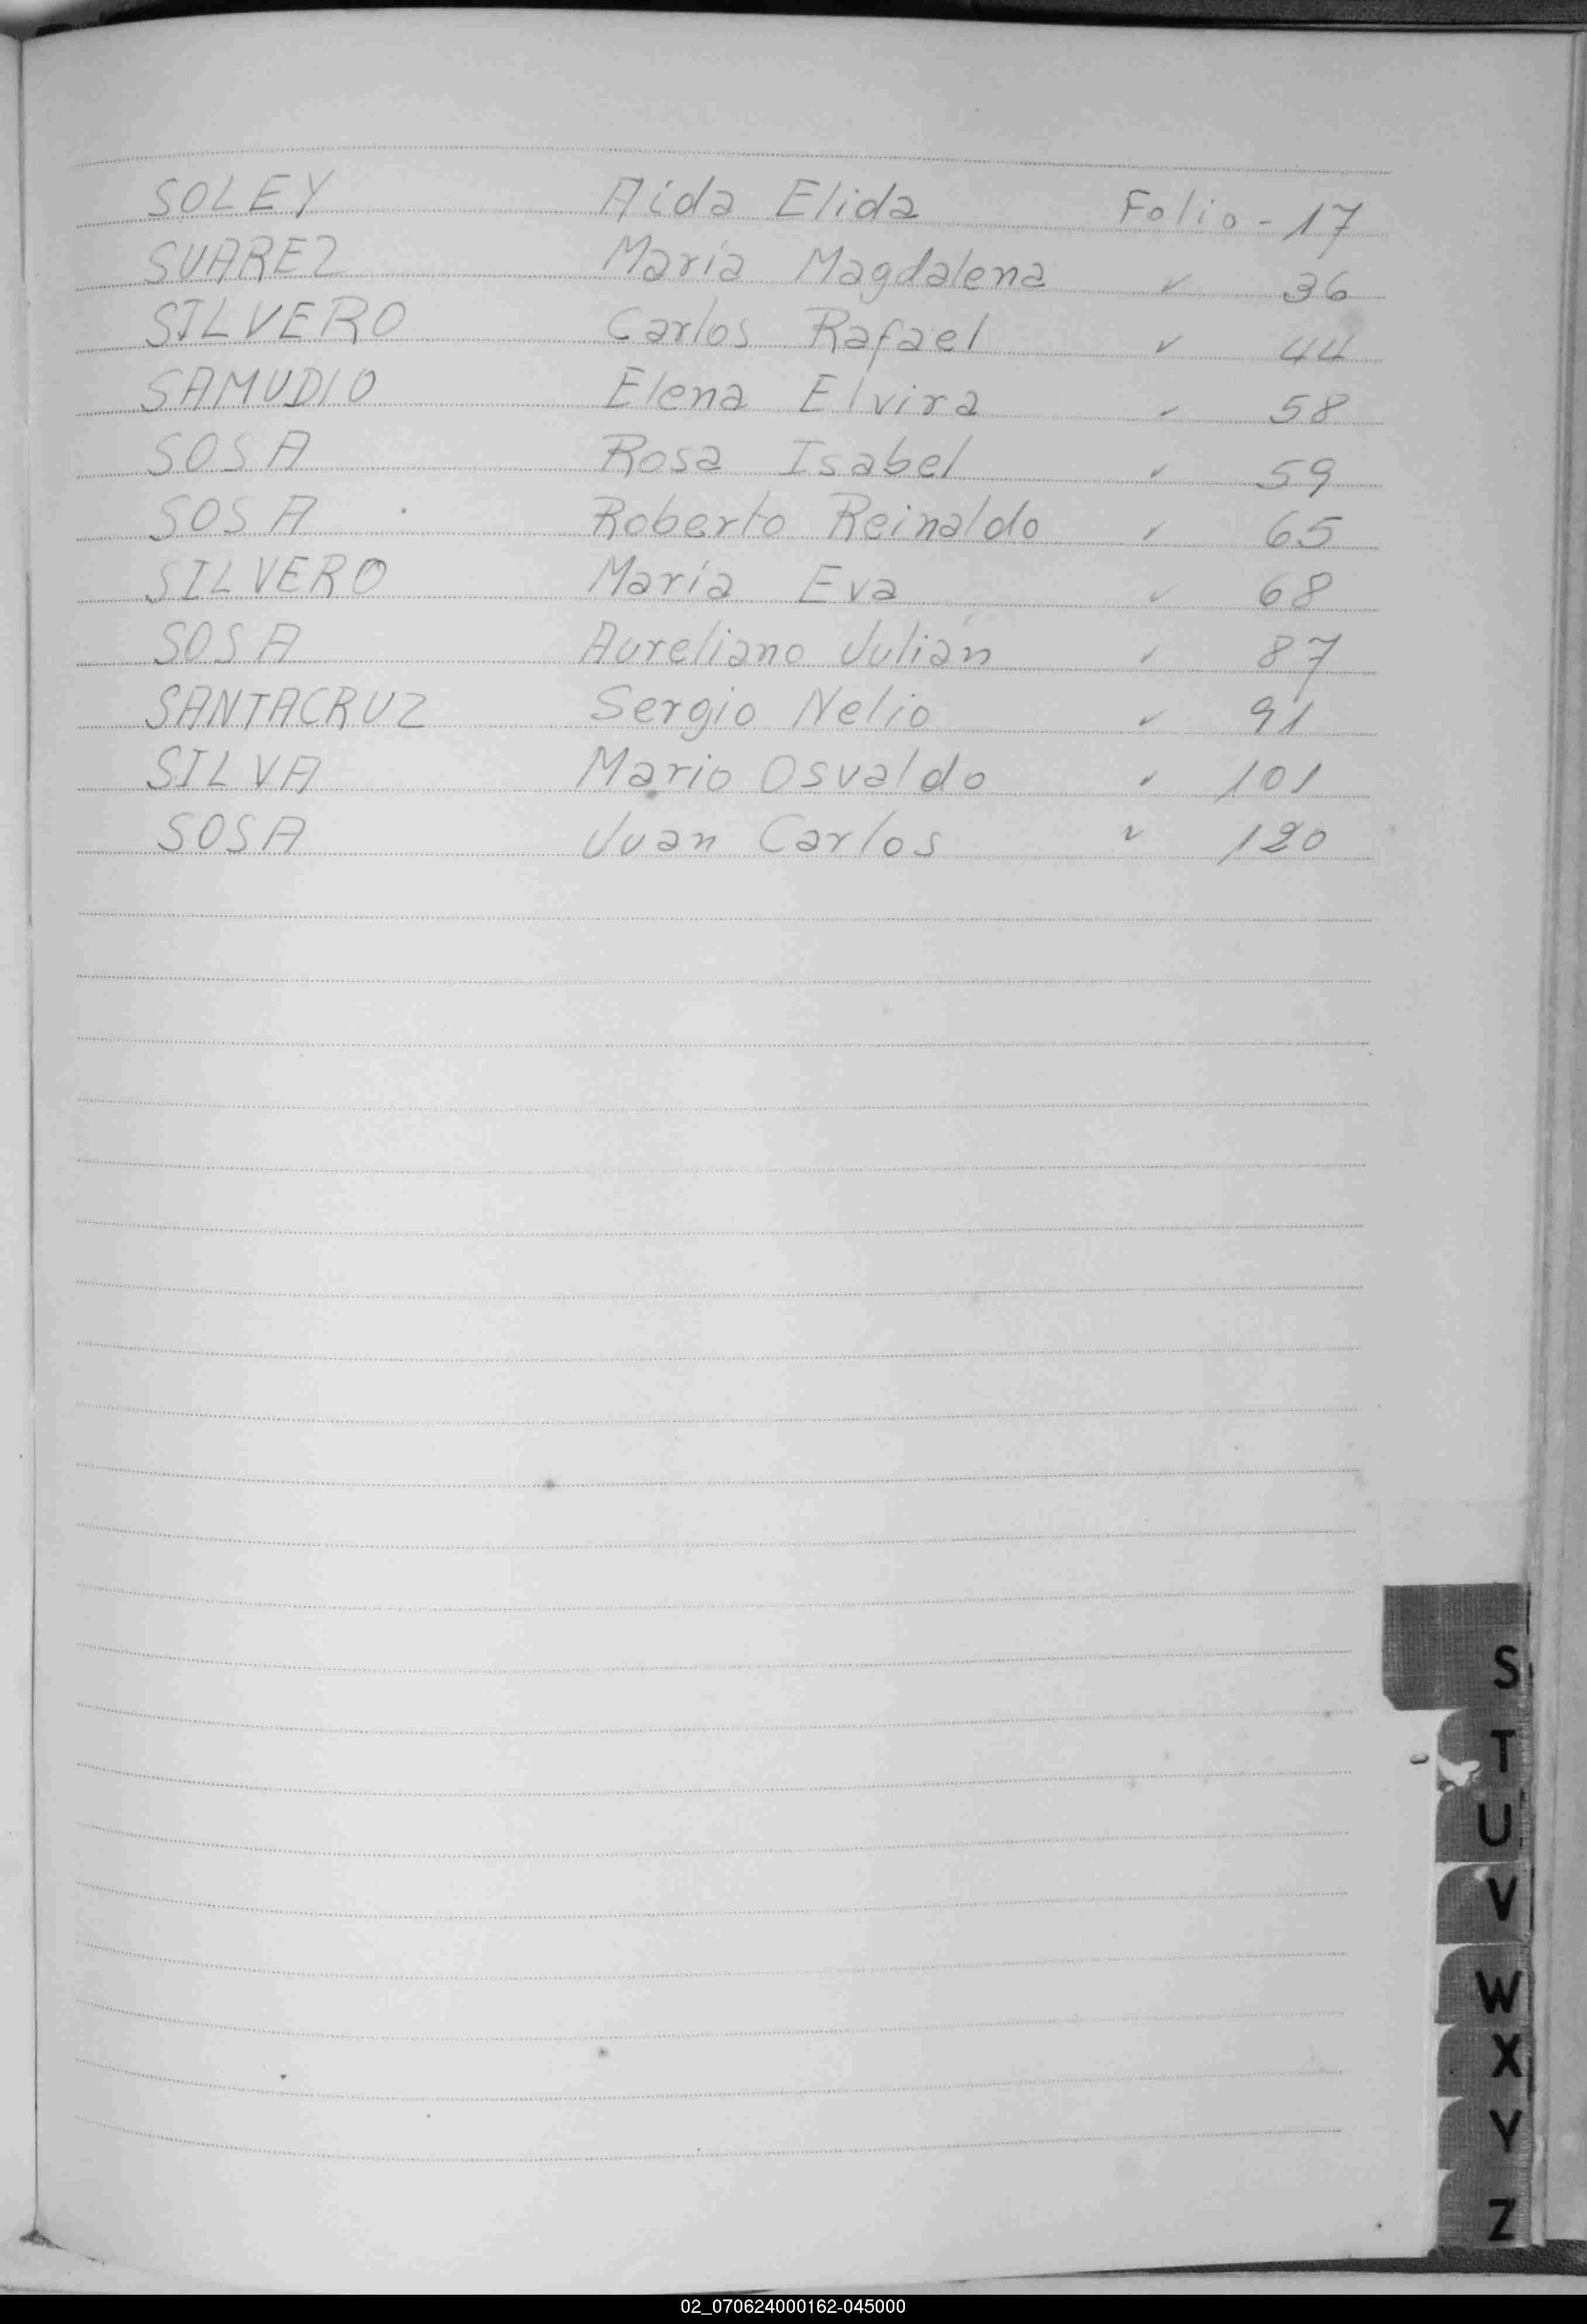 SOLEY Aida Elida Folio - 17
SUAREZ María Magdalena ✓ 36
SILVERO Carlos Rafael ✓ 44
SAMUDIO Elena Elvira ✓ 58
SOSA Rosa Isabel ✓ 59
SOSA Roberto Reinaldo ✓ 65
SILVERO María Eva ✓ 68
SOSA Aureliano Julián ✓ 87
SANTACRUZ Sergio Nelio ✓ 91
SILVA Mario Osvaldo ✓ 101
SOSA Juan Carlos ✓ 120
S
T
U
V
W
X
Y
Z
02_070624000162-045000